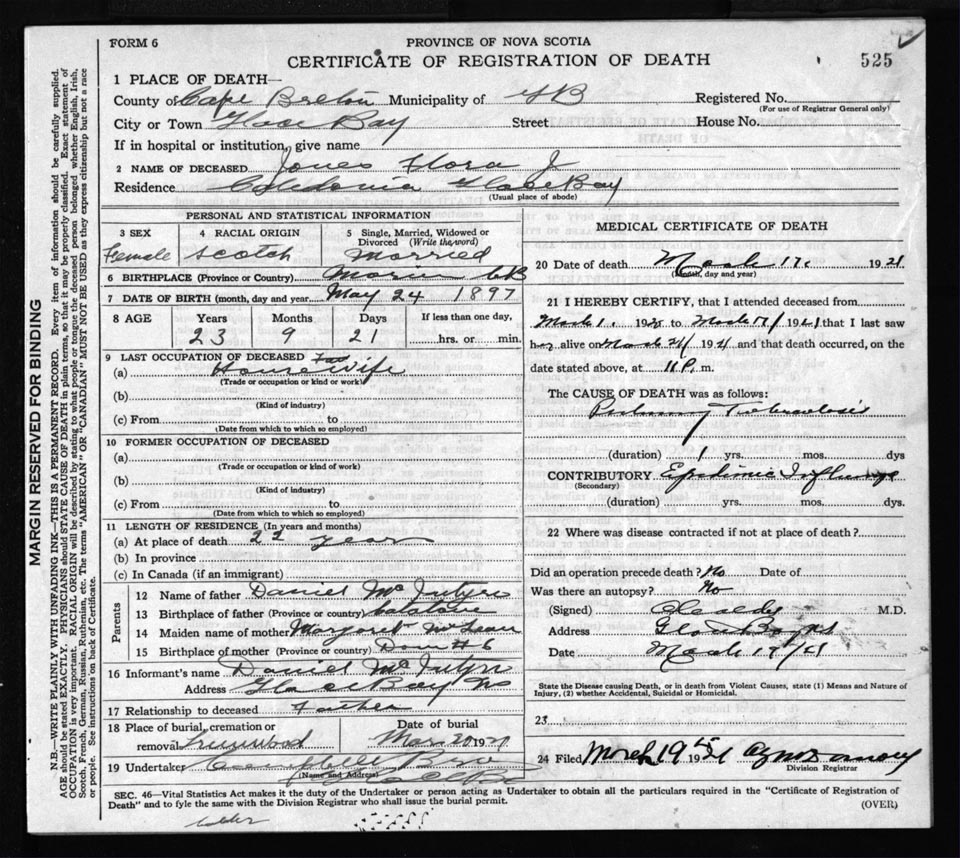 FORM 6
PROVINCE OF NOVA SCOTIA
CERTIFICATE OF REGISTRATION OF DEATH
525
1 PLACE OF DEATH—
County of Cape Breton Municipality of GB Registered No.
(For use of Registrar General only)
City or Town Glace Bay Street House No.
If in hospital or institution, give name
2 NAME OF DECEASED Jones Flora J
Residence Caledonia Glace Bay
(Usual place of abode)
PERSONAL AND STATISTICAL INFORMATION
3 SEX Female
4 RACIAL ORIGIN Scotch
5 Single, Married, Widowed or Divorced (Write the word) Married
6 BIRTHPLACE (Province or Country) CB
7 DATE OF BIRTH (month, day and year) May 24 1897
8 AGE Years Months Days If less than one day,
23 9 21 hrs. or min.
9 LAST OCCUPATION OF DECEASED
(a) House Wife
(Trade or occupation or kind or work)
(b)
(Kind of industry)
(c) From to
(Date from which to which so employed)
10 FORMER OCCUPATION OF DECEASED
(a)
(Trade or occupation or kind of work)
(b)
(Kind of industry)
(c) From to
(Date from which to which so employed)
11 LENGTH OF RESIDENCE (In years and months)
(a) At place of death 22 years
(b) In province
(c) In Canada (if an immigrant)
Parents
12 Name of father Daniel McIntyre
13 Birthplace of father (Province or country)
14 Maiden name of mother Margaret McLean
15 Birthplace of mother (Province or country)
16 Informant's name Daniel McIntyre
Address Glace Bay NS
17 Relationship to deceased Father
18 Place of burial, cremation or removal Greenwood
Date of burial Mar 20 1921
19 Undertaker Campbell
(Name and Address)
MEDICAL CERTIFICATE OF DEATH
20 Date of death March 17 1921
(Month, day and year)
21 I HEREBY CERTIFY, that I attended deceased from
March 1, 1920 to March 17/ 1921 that I last saw
her alive on March 1921 and that death occurred, on the
date stated above, at 11 P. m.
The CAUSE OF DEATH was as follows:
Pulmonary Tuberculosis
(duration) 1 yrs. mos. dys
CONTRIBUTORY Epidemic Influenza
(Secondary)
(duration) yrs. mos. dys.
22 Where was disease contracted if not at place of death?
Did an operation precede death? No Date of
Was there an autopsy? No
(Signed) M.D.
Address Glace Bay NS
Date March 19/21
State the Disease causing Death, or in death from Violent Causes, state (1) Means and Nature of
Injury, (2) whether Accidental, Suicidal or Homicidal.
23
24 Filed March 19 1921
Division Registrar
SEC. 46—Vital Statistics Act makes it the duty of the Undertaker or person acting as Undertaker to obtain all the particulars required in the "Certificate of Registration of
Death" and to fyle the same with the Division Registrar who shall issue the burial permit.
(OVER)
MARGIN RESERVED FOR BINDING
N.B.—WRITE PLAINLY WITH UNFADING INK—THIS IS A PERMANENT RECORD. Every item of information should be carefully supplied.
AGE should be stated EXACTLY. PHYSICIANS should STATE CAUSE OF DEATH in plain terms, so that it may be properly classified. Exact statement of
OCCUPATION is very important. RACIAL ORIGIN will be described by stating to what people or tongue the deceased person belonged, whether English, Irish,
Scotch, French, German, Russian, Ruthenian, etc. The terms "AMERICAN" OR "CANADIAN" MUST NOT BE USED as they express citizenship but not a race
or people. See instructions on back of Certificate.